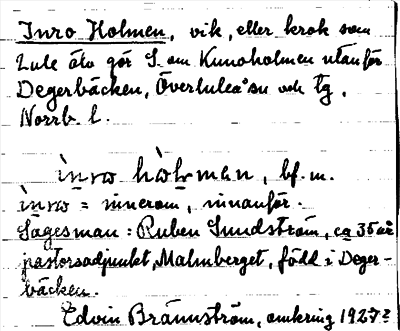 Inro Holmen, vik, eller krok som
Lule älv gör S. om Kunoholmen utanför
Degerbäcken, Överluleå sn och tg,
Norrb. l.
ìnrω hòlmαn, bf. m.
ìnrω = innerom, innanför.
Sagesman: Ruben Sundström, ca 35 år
pastorsadjunkt, Malmberget, född i Deger-
bäcken.
Edvin Brännström, omkring 1927?